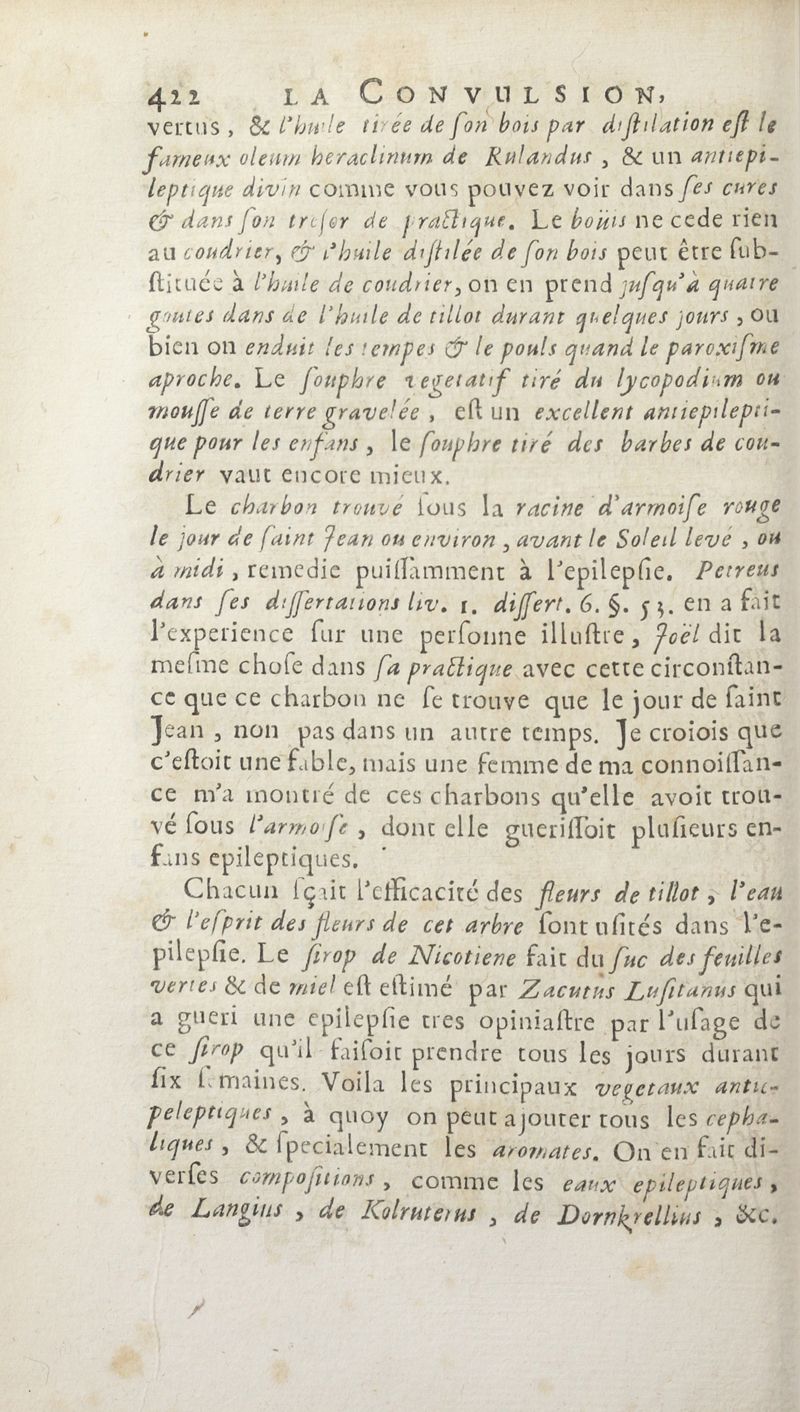 422 LA CONVULSION,
vertus, & l'huile tirée de ſon bois par diſtilation eſt le
fameux oleum heraclinum de Rulandus, & un antiepi-
leptique divin comme vous pouvez voir dans ſes cures
& dans ſon treſor de practique. Le boüis ne cede rien
au coudrier, & l'huile diſtilée de ſon bois peut être ſub-
ſtituée à l'huile de coudrier, on en prend juſqu'à quatre
goutes dans de l'huile de tillot durant quelques jours, ou
bien on enduit les tempes & le pouls quand le paroxiſme
aproche. Le ſouphre vegetatif tiré du lycopodium ou
mouſſe de terre gravelée, eſt un excellent antiepilepti-
que pour les enfans, le ſouphre tiré des barbes de cou-
drier vaut encore mieux.
Le charbon trouvé ſous la racine d'armoiſe rouge
le jour de ſaint Jean ou environ, avant le Soleil levé, ou
à midi, remedie puiſſamment à l'epilepſie. Petreus
dans ſes diſſertations liv. 1. diſſert. 6. §. 53. en a fait
l'experience ſur une perſonne illuſtre, Joël dit la
meſme choſe dans ſa practique avec cette circonſtan-
ce que ce charbon ne ſe trouve que le jour de ſaint
Jean, non pas dans un autre temps. Je croiois que
c'eſtoit une fable, mais une femme de ma connoiſſan-
ce m'a montré de ces charbons qu'elle avoit trou-
vé ſous l'armoiſe, dont elle gueriſſoit pluſieurs en-
fans epileptiques.
Chacun ſçait l'efficacité des fleurs de tillot, l'eau
& l'eſprit des fleurs de cet arbre ſont uſités dans l'e-
pilepſie. Le ſirop de Nicotiene fait du ſuc des feuilles
vertes & de miel eſt eſtimé par Zacutus Luſitanus qui
a gueri une epilepſie tres opiniaſtre par l'uſage de
ce ſirop qu'il faiſoit prendre tous les jours durant
ſix ſemaines. Voila les principaux vegetaux antie-
peleptiques, à quoy on peut ajouter tous les cepha-
liques, & ſpecialement les aromates. On en fait di-
verſes compoſitions, comme les eaux epileptiques,
de Langius, de Kolruterus, de Dornkrellius, &c.